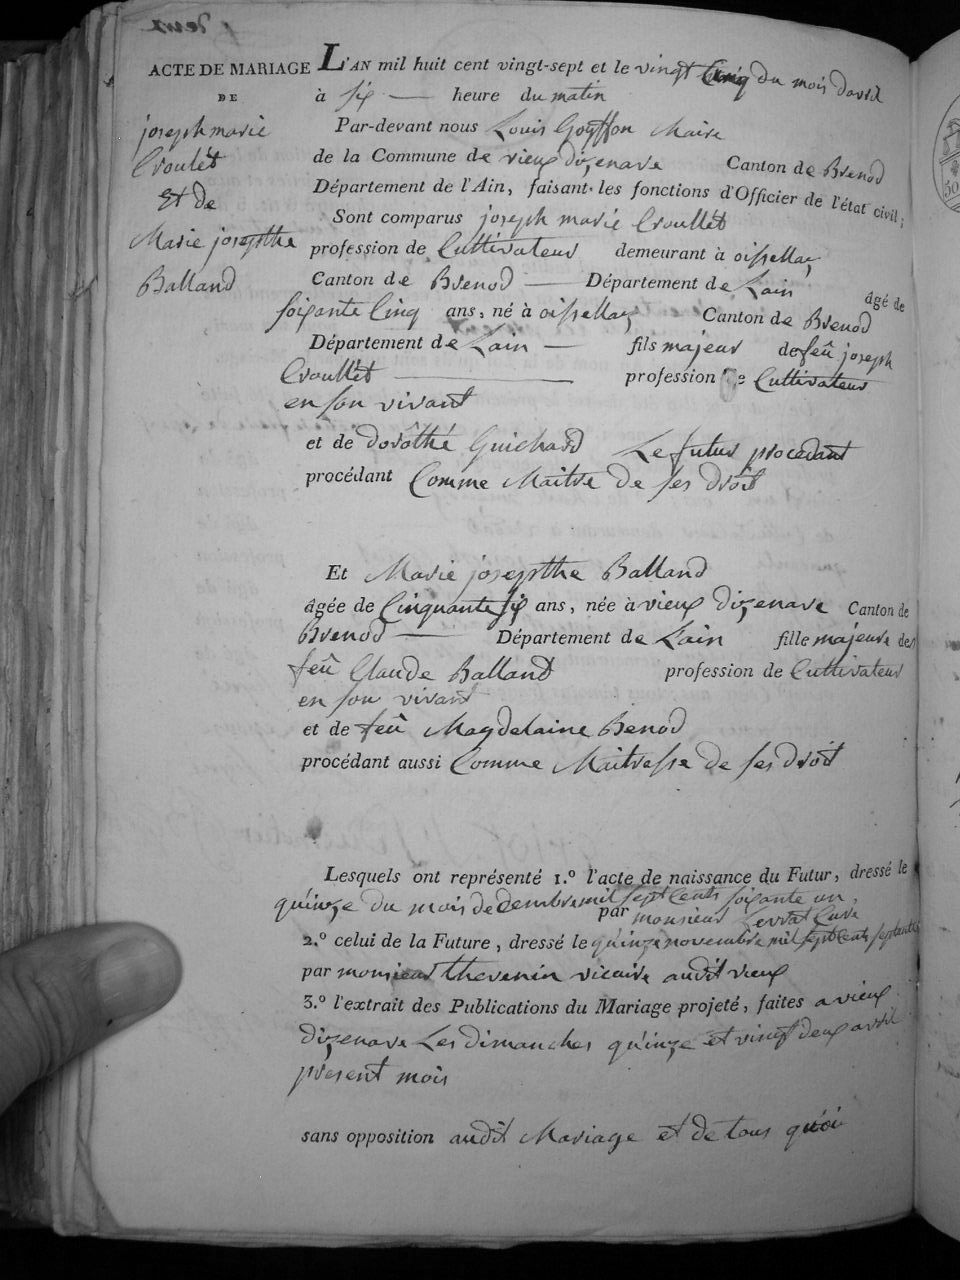 ACTE DE MARIAGE
DE
joseph marie
Croullet
Et de
Marie josepthe
Balland
L'AN mil huit cent vingt-sept et le vingt Cinq du mois davril
à six heure du matin
Par-devant nous Louis Goyffon Maire
de la Commune de vieux dizenave Canton de Brenod
Département de l'Ain, faisant les fonctions d'Officier de l'état civil;
Sont comparus joseph marie Croullet
profession de Cultivateur demeurant à oissellaz
Canton de Brenod Département de Lain âgé de
soixante Cinq ans, né à oissellaz Canton de Brenod
Département de Lain fils majeur de feû joseph
Croullet profession de Cultivateur
en son vivant
et de dorôthé Guichard Le futur procedant
procédant Comme Maitre de ses droit
Et Marie josepthe Balland
âgée de Cinquante six ans, née à vieux dizenave Canton de
Brenod Département de Lain fille majeure de
feû Claude Balland profession de Cultivateur
en son vivant
et de feû Magdelaine Benod
procédant aussi Comme Maitresse de ses droit
Lesquels ont représenté 1.º l'acte de naissance du Futur, dressé le
quinze du mois de decembre mil sept Cents soixante un,
par monsieur Curé
2.º celui de la Future, dressé le quinze novembre mil sept Cents septante
par monsieur thevenin vicaire audit vieux
3.º l'extrait des Publications du Mariage projeté, faites a vieux
dizenave Les dimanches quinze et vingt deux avril
present mois
sans opposition audit Mariage et de tous quoi